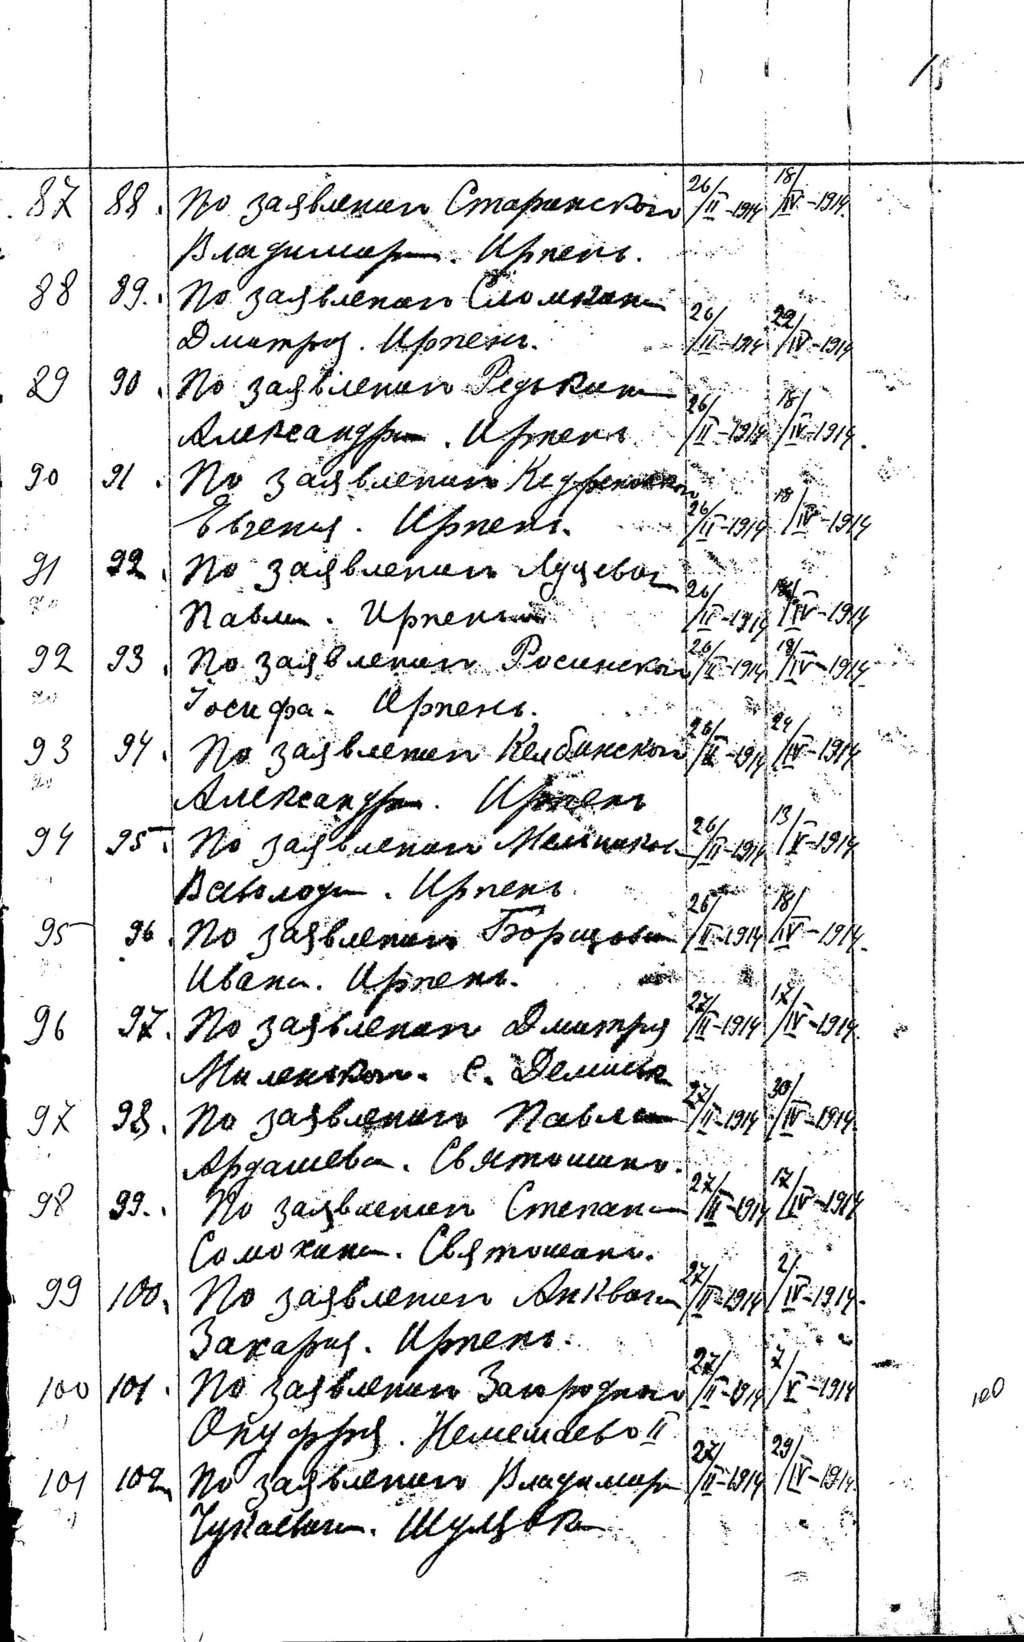 15
87 88. По заявлению Старинского 26/II-1914 18/IV-1914.
Владимира. Ирпень.
88 89. По заявлению Сломкина 26/II-1914 22/IV-1914
Дмитрия. Ирпень.
89 90. По заявлению Редькина 26/II-1914 18/IV-1914.
Александра. Ирпень
90 91. По заявлению 26/II-1914 18/IV-1914
Евгения. Ирпень.
91 92. По заявлению 26/II-1914 /IV-1914
Павла. Ирпень
92 93. По заявлению Росинского 26/II-1914 18/IV-1914.
Іосифа. Ирпень.
93 94. По заявлению Келбинского 26/II-1914 24/IV-1914
Александра. Ирпень
94 95. По заявлению Мельникова 26/II-1914 13/V-1914
Всеволода. Ирпень
95 96. По заявлению Борщова 26/II-1914 18/IV-1914.
Ивана. Ирпень.
96 97. По заявлению Дмитрия 27/II-1914 17/IV-1914.
Миленького. с. Демиевка
97 98. По заявлению Павла 27/II-1914 30/IV-1914.
Ардашева. Святошино.
98 99. По заявлению Степана 27/II-1914 17/IV-1914
Сомохина. Святошино.
99 100. По заявлению 27/II-1914 2/IV-1914.
Захария. Ирпень.
100 101. По заявлению Загородняго 27/II-1914 7/V-1914 100
Онуфрия. Немешаево II
101 102. По заявлению Владимира 27/II-1914 29/IV-1914.
Чукаевого. Шулявка